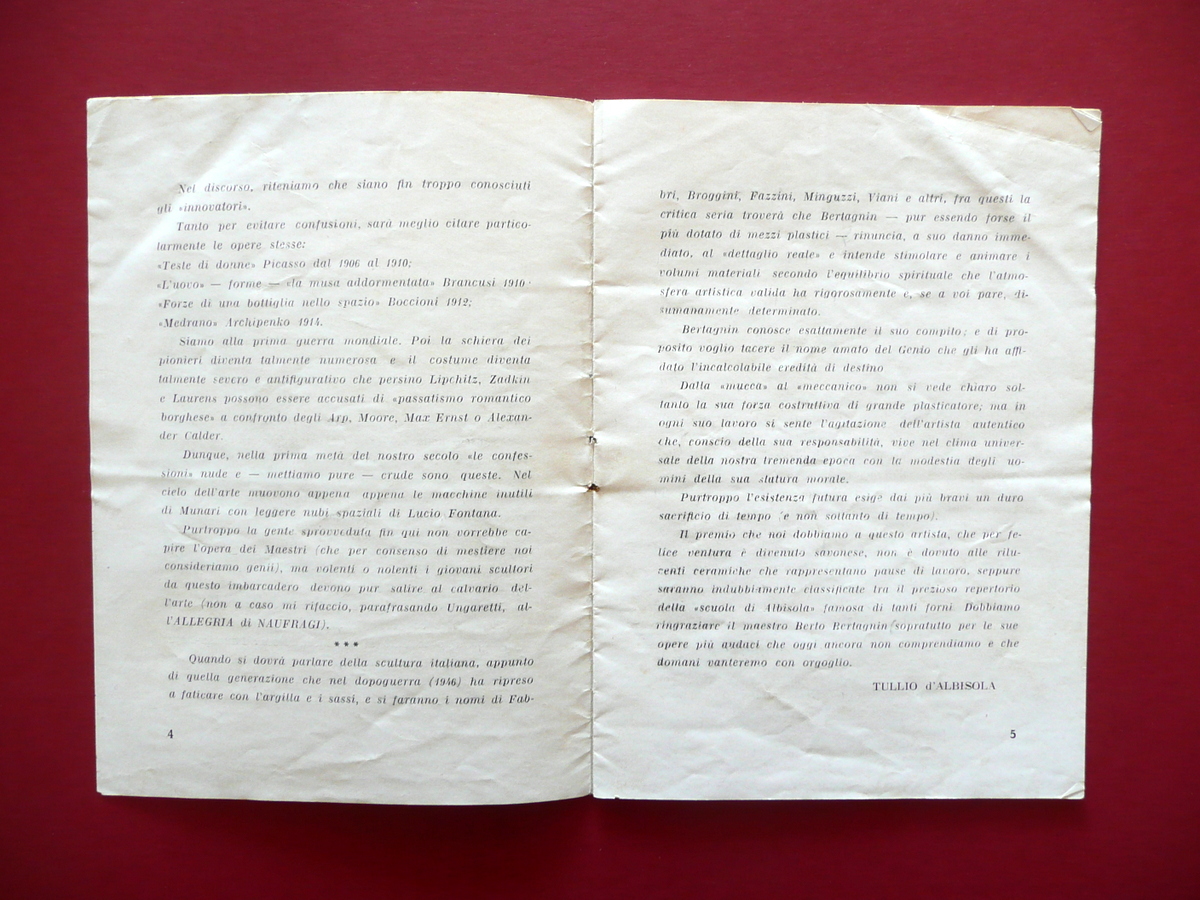 Nel discorso, riteniamo che siano fin troppo conosciuti
gli «innovatori».
Tanto per evitare confusioni, sarà meglio citare partico-
larmente le opere stesse:
«Teste di donne» Picasso dal 1906 al 1910;
«L'uovo» — forme — «la musa addormentata» Brancusi 1910
«Forze di una bottiglia nello spazio» Boccioni 1912;
«Medrano» Archipenko 1914.
Siamo alla prima guerra mondiale. Poi la schiera dei
pionieri diventa talmente numerosa e il costume diventa
talmente severo e antifigurativo che persino Lipchitz, Zadkin
e Laurens possono essere accusati di «passatismo romantico
borghese» a confronto degli Arp, Moore, Max Ernst o Alexan-
der Calder.
Dunque, nella prima metà del nostro secolo «le confes-
sioni» nude e — mettiamo pure — crude sono queste. Nel
cielo dell'arte muovono appena appena le macchine inutili
di Munari con leggere nubi spaziali di Lucio Fontana.
Purtroppo la gente sprovveduta fin qui non vorrebbe ca-
pire l'opera dei Maestri (che per consenso di mestiere noi
consideriamo genii), ma volenti o nolenti i giovani scultori
da questo imbarcadero devono pur salire al calvario del-
l'arte (non a caso mi rifaccio, parafrasando Ungaretti, al-
l'ALLEGRIA di NAUFRAGI).
***
Quando si dovrà parlare della scultura italiana, appunto
di quella generazione che nel dopoguerra (1946) ha ripreso
a faticare con l'argilla e i sassi, e si faranno i nomi di Fab-
4
bri, Broggini, Fazzini, Minguzzi, Viani e altri, fra questi la
critica seria troverà che Bertagnin — pur essendo forse il
più dotato di mezzi plastici — rinuncia, a suo danno imme-
diato, al «dettaglio reale» e intende stimolare e animare i
volumi materiali secondo l'equilibrio spirituale che l'atmo-
sfera artistica valida ha rigorosamente e, se a voi pare, di-
sumanamente determinato.
Bertagnin conosce esattamente il suo compito; e di pro-
posito voglio tacere il nome amato del Genio che gli ha affi-
dato l'incalcolabile eredità di destino
Dalla «mucca» al «meccanico» non si vede chiaro sol-
tanto la sua forza costruttiva di grande plasticatore; ma in
ogni suo lavoro si sente l'agitazione dell'artista autentico
che, conscio della sua responsabilità, vive nel clima univer-
sale della nostra tremenda epoca con la modestia degli uo-
mini della sua statura morale.
Purtroppo l'esistenza futura esige dai più bravi un duro
sacrificio di tempo (e non soltanto di tempo).
Il premio che noi dobbiamo a questo artista, che per fe-
lice ventura è divenuto savonese, non è dovuto alle rilu-
centi ceramiche che rappresentano pause di lavoro, seppure
saranno indubbiamente classificate tra il prezioso repertorio
della «scuola di Albisola» famosa di tanti forni. Dobbiamo
ringraziare il maestro Berto Bertagnin (sopratutto per le sue
opere più audaci che oggi ancora non comprendiamo e che
domani vanteremo con orgoglio.
TULLIO d'ALBISOLA
5